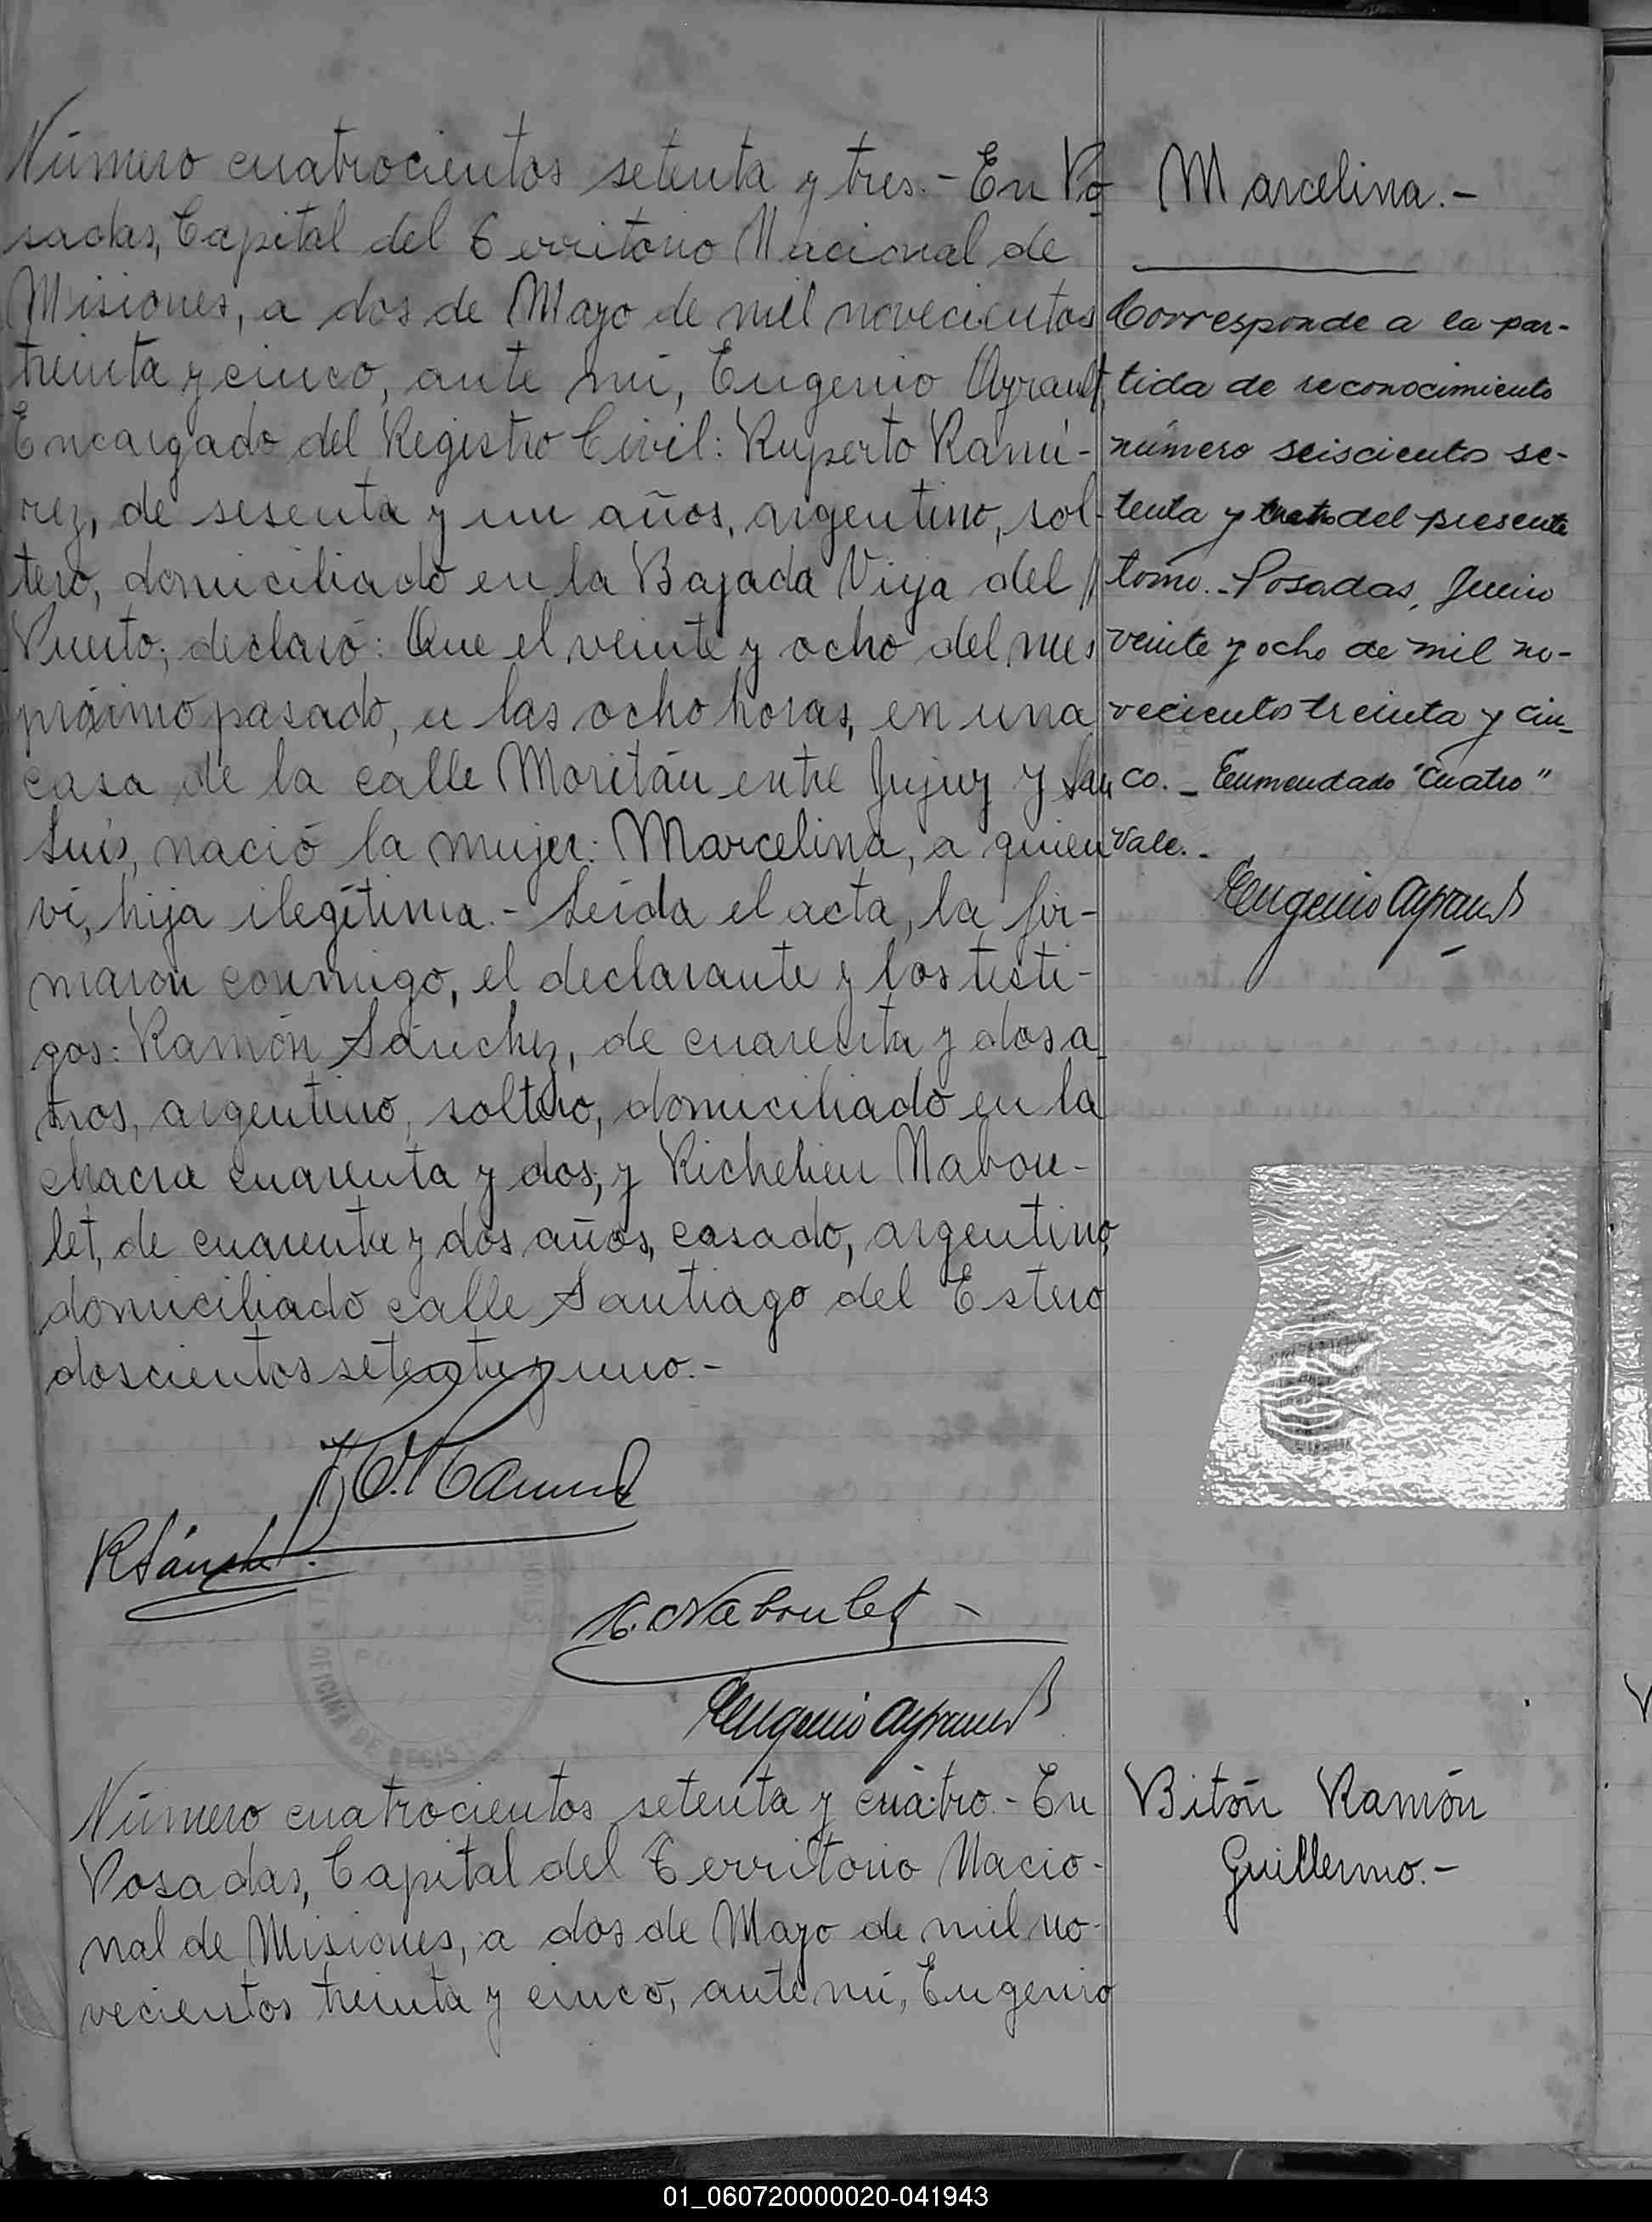 Número cuatrocientos setenta y tres.- En Po
sadas, Capital del Territorio Nacional de
Misiones, a dos de Mayo de mil novecientos
treinta y cinco, ante mí, Eugenio Ayrault,
Encargado del Registro Civil: Ruperto Ramí-
rez, de sesenta y un años, argentino, sol-
tero, domiciliado en la Bajada Vieja del
Puerto; declaró: Que el veinte y ocho del mes
próximo pasado, a las ocho horas, en una
casa de la calle Moritán entre Jujuy y San
Luis, nació la mujer: Marcelina, a quien
vi, hija ilegítima.- Leída el acta, la fir-
maron conmigo, el declarante y los testi-
gos: Ramón Sánchez, de cuarenta y dos a
ños, argentino, soltero, domiciliado en la
chacra cuarenta y dos; y Richelieu Nabou-
let, de cuarenta y dos años, casado, argentino,
domiciliado calle Santiago del Estero
doscientos setenta y uno.-
R Sánchez
R. Naboulet
Eugenio Ayrault
OFICINA DE REGIS
Número cuatrocientos setenta y cuatro.- En
Posadas, Capital del Territorio Nacio-
nal de Misiones, a dos de Mayo de mil no-
vecientos treinta y cinco, ante mí, Eugenio
Marcelina.-
Corresponde a la par-
tida de reconocimiento
número seiscientos se-
tenta y cuatro del presente
tomo.- Posadas, Junio
veinte y ocho de mil no-
vecientos treinta y cin-
co.- Enmendado "cuatro"
Vale.-
Eugenio Ayrault
Bitón Ramón
Guillermo.-
01_060720000020-041943